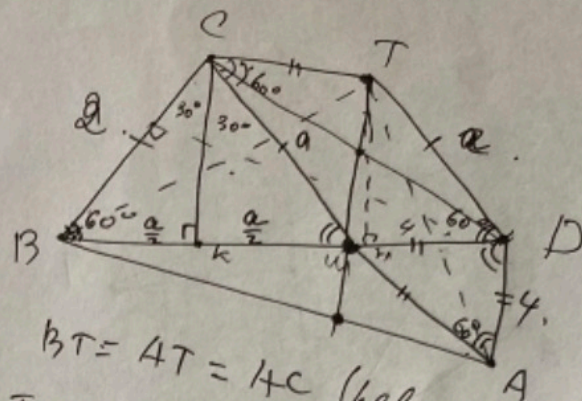 C
T
60°
2
30°
30°
a
a
60°
a/2
a/2
60
B
K
D
4
60°
4.
A
BT = AT = AC